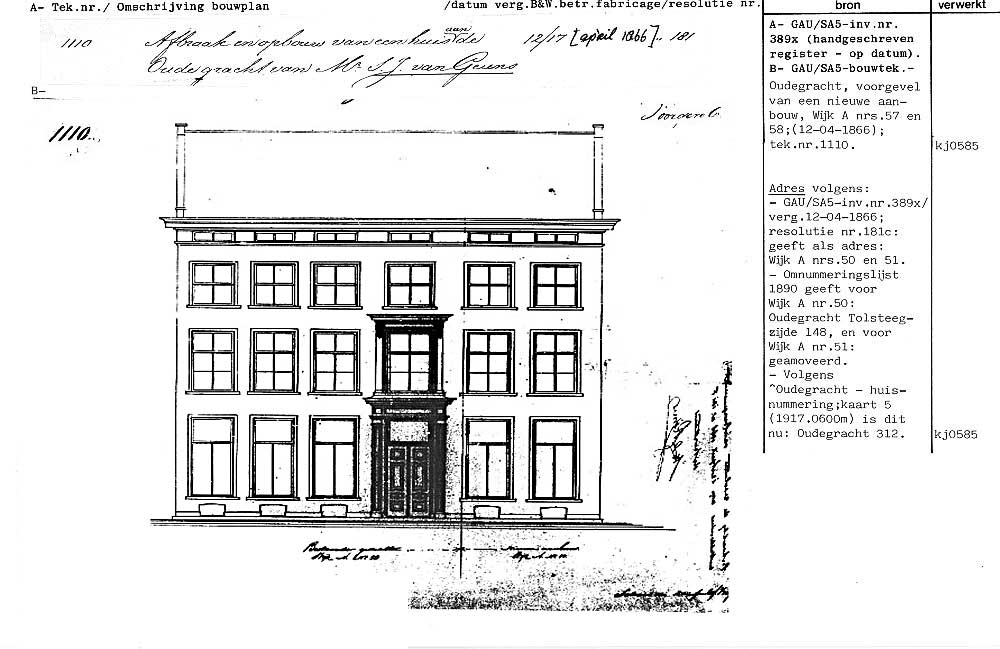 A- Tek.nr./ Omschrijving bouwplan /datum verg.B&W.betr.fabricage/resolutie nr.
1110 Afbraak en opbouw van een huis aan de 12/17 [april 1866].. 181
Oude gracht van Mr. S. J. van Geuns
B-
1110.
bron
A- GAU/SA5-inv.nr.
389x (handgeschreven
register - op datum).
B- GAU/SA5-bouwtek.-
Oudegracht, voorgevel
van een nieuwe aan-
bouw, Wijk A nrs.57 en
58;(12-04-1866);
tek.nr.1110.
Adres volgens:
- GAU/SA5-inv.nr.389x/
verg.12-04-1866;
resolutie nr.181c:
geeft als adres:
Wijk A nrs.50 en 51.
- Omnummeringslijst
1890 geeft voor
Wijk A nr.50:
Oudegracht Tolsteeg-
zijde 148, en voor
Wijk A nr.51:
geamoveerd.
- Volgens
^Oudegracht - huis-
nummering;kaart 5
(1917.0600m) is dit
nu: Oudegracht 312.
verwerkt
kj0585
kj0585